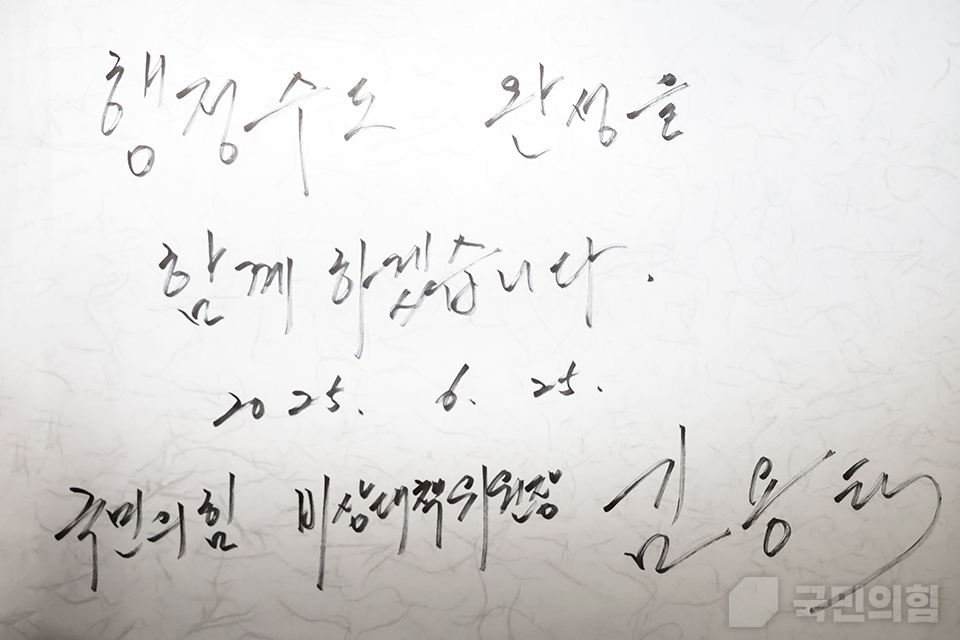 행정수도 완성을
함께 하겠습니다.
2025. 6. 25.
국민의힘 비상대책위원장 김용태
국민의힘